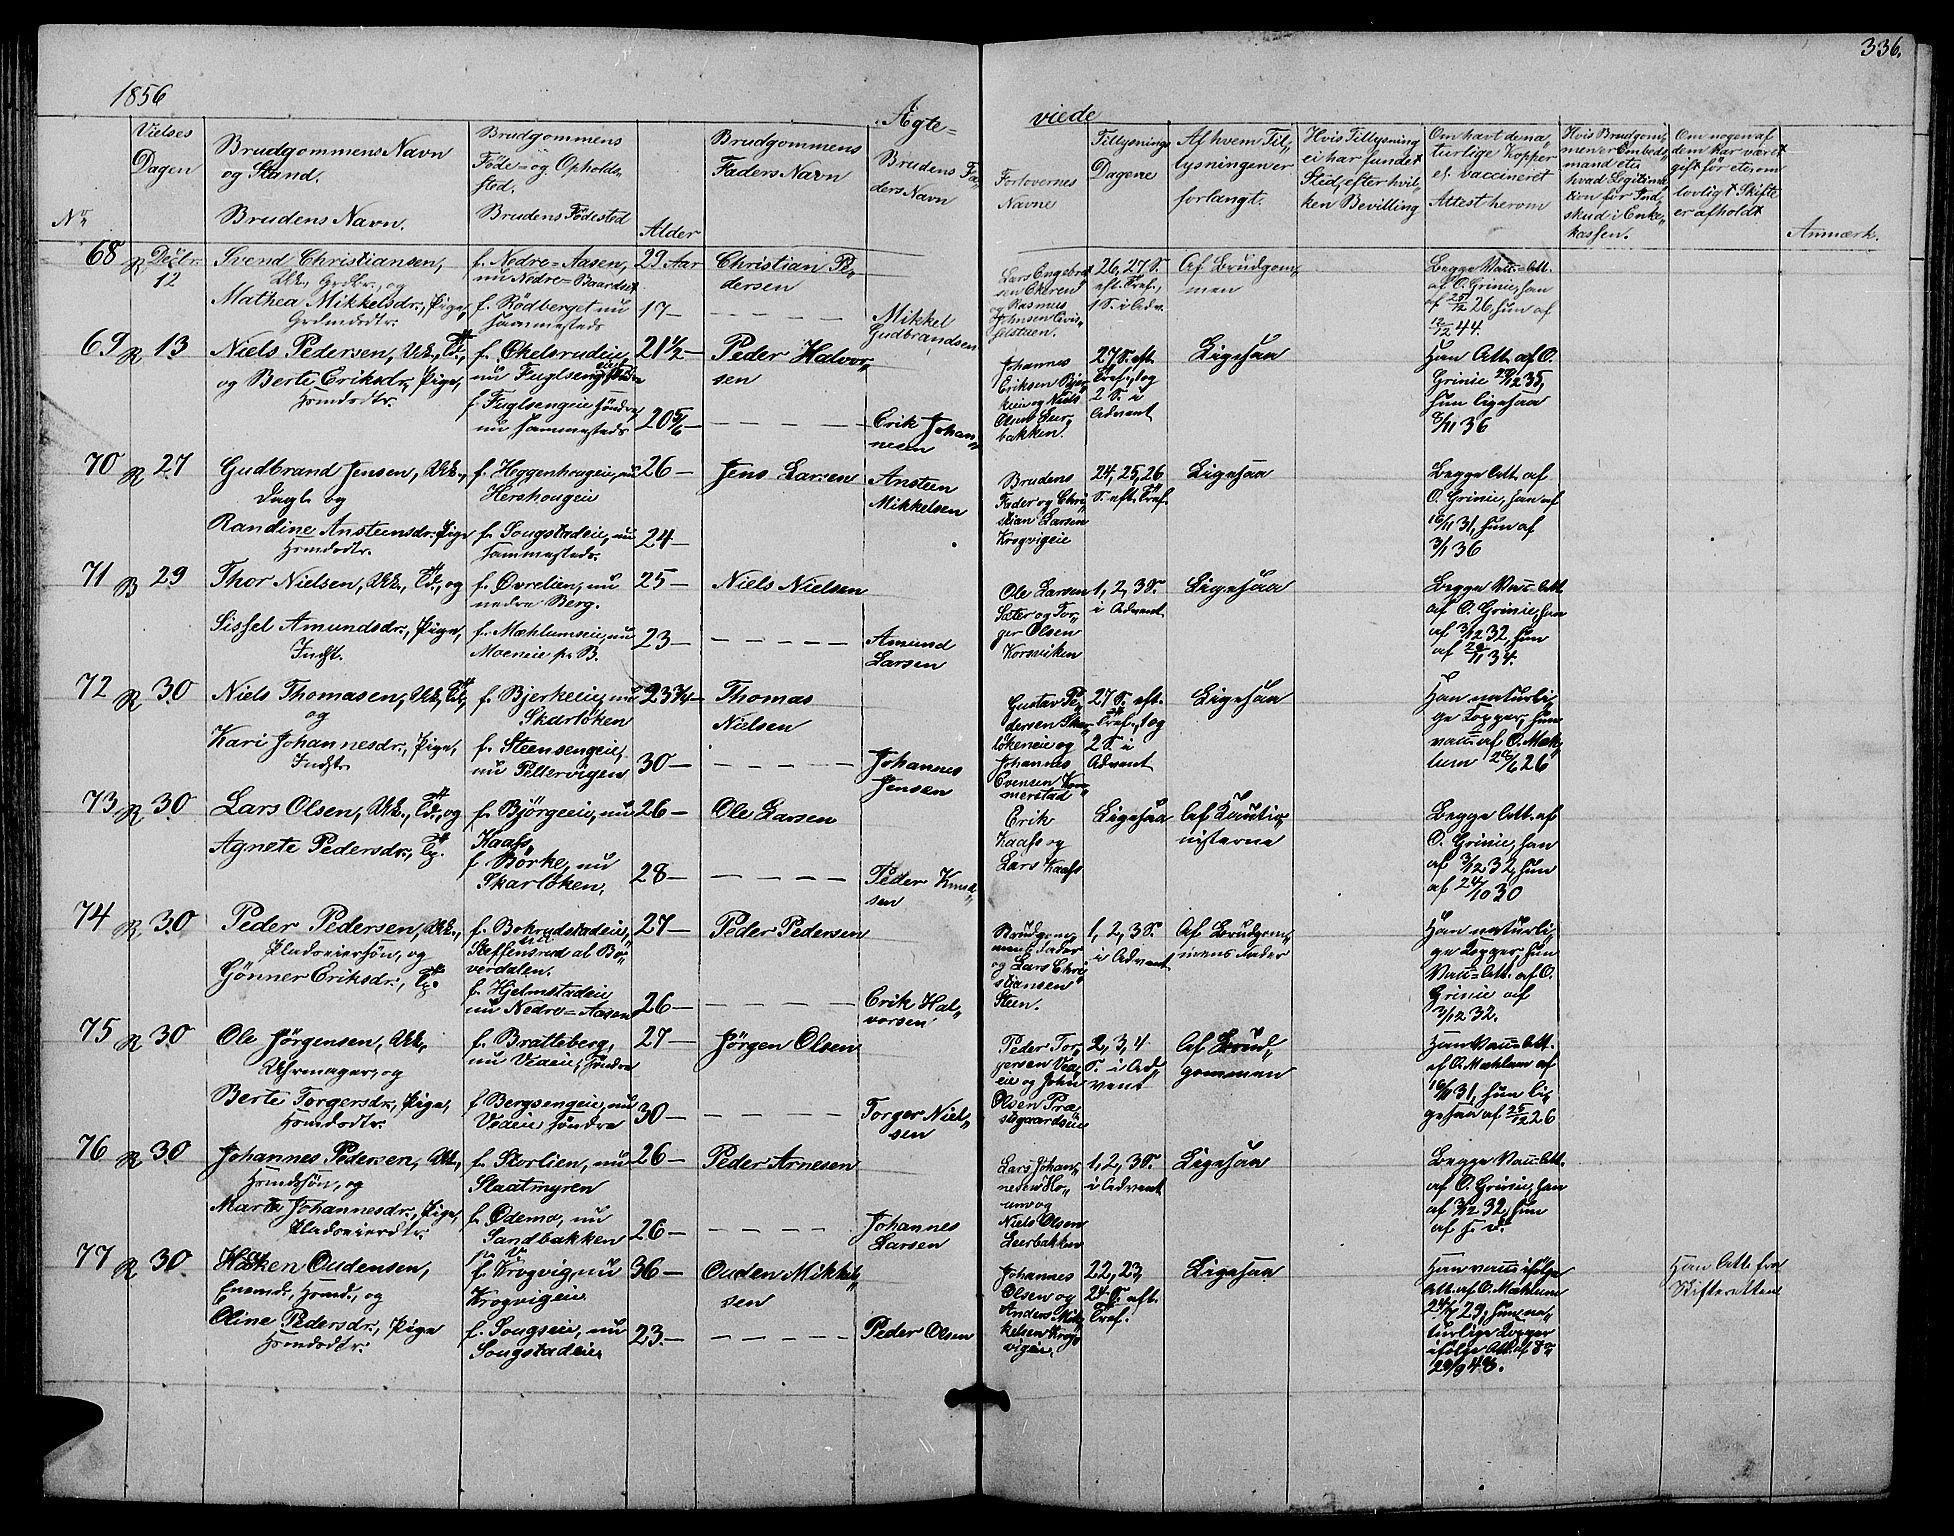 336.
1856
Ægte=
viede
No
Vielses
Dagen
Brudgommens Navn
og Stand.
Brudens Navn.
Brudgommens
Føde- og Opholds
sted.
Brudens Fødested
Alder
Brudgommens
Faders Navn
Brudens Fa-
ders Navn
Forlovernes
Navne
Tillysnings
Dagene
Af hvem Til,
lysningen er
forlangt.
Hvis Tillysning
ei har fundet
Sted, efter hvil-
ken Bevilling
Om havt de na,
turlige Kopper
el. vaccineret
Attest herom
Hvis Brudgom,
men er Embeds
mand etc
hvad Legitima
tion for Ind,
skud i Enke,
kassen.
Om nogen af
dem har været
gift før eterom
lovligt Skifte
er afholdt
Anmærk.
68 R Decbr.
12
Svend Christiansen,
Ukk., Grdbr., og
Mathea Mikkelsdr., Pige,
Grdmdodtr.
f. Nedre=Aasen,
nu Nedre=Baardset
f. Rödberget nu
sammesteds
29 Aar
17 —
Christian Pe,
dersen
Mikkel
Gudbrandsen
Lars Engebret
sen Ekeren
og Rasmus
Johnsen
26, 27 S.
eft. Tref.,
1 S. i Adv.
Af Brudgom,
men
Begge Vacc. Att.
af O. Grinie, han
af 26, hun af
44.
69 R 13
Niels Pedersen, Ukk., Td.,
og Berte Eriksdr., Pige,
Hsmdodtr.
f. Ekelsrudeie,
nu Fuglsengeie
f. Fuglsengeie söndre
nu sammesteds
21½ —
20 5/6 —
Peder Halvor,
sen
Erik Johan,
nesen
Johannes
Eriksen Bjer,
keie og Niels
Olsen Leer,
bakken.
27 S. eft.
Tref., 1 og
2 S. i
Advent
Ligesaa
Han Att. af O.
Grinie 35,
hun ligesaa
36
70 R 27
Gudbrand Jensen, Ukk.,
Dagl. og
Randine Ansteensdr., Pige
Hsmdodtr.
f. Heggenhougeie, nu
Hershougeie
f. Sougstadeie, nu
sammesteds.
26 —
24 —
Jens Larsen
Ansteen
Mikkelsen
Brudens
Fader og Chri,
stian Larsen
Krogvigeie
24, 25, 26
S. eft. Tref.
Ligesaa
Begge Att. af
O. Grinie, han af
16/11 31, hun af
3/1 36
71 B 29
Thor Nielsen, Ukk., Td., og
Sissel Amundsdr., Pige,
Indst.
f. Övrelien, nu
nedre Berg.
f. Mæhlumseie, nu
Moeneie p. B.
25 —
23 —
Niels Nielsen
Amund
Larsen
Ole Larsen
Sæter og Tor,
ger Olsen
Korsviken
1, 2, 3 S.
i Advent
Ligesaa
Begge Vacc. Att.
af O. Grinie, han
af 3/12 32, hun
af 34.
72 R 30
Niels Thomasen, Ukk., Td.,
og
Kari Johannesdr., Pige,
Indst.
f. Bjerkeeie, nu
Skarlöken
f. Steensengeie,
nu Pellervigen
23¾ —
30 —
Thomas
Nielsen
Johannes
Jensen
Gustav Pe,
dersen Skar,
lökeneie og
Johannes
Evensen
27 S. eft.
Tref., 1 og
2 S. i
Advent
Ligesaa
Han naturli,
ge Kopper, hun
vacc. af O. Mæh,
lum 26
73 R 30
Lars Olsen, Ukk., Td., og
Agnete Pedersdr., Tp.
f. Björgeeie, nu
Kaafs,
f. Börke, nu
Skarlöken,
26 —
28 —
Ole Larsen
Peder Knud,
sen
Erik
Kaafs og
Lars Kaafs
Ligesaa
Af Kautio,
nisterne
Begge Att. af
O. Grinie, han
af 3/12 32, hun
af 24/10 30
74 R 30
Peder Pedersen, Ukk.,
Pladseiersön, og
Gönner Eriksdr., Tp.
f. Bokrudstadeie,
nu
Steffensrud al. Bö,
verdalen.
f. Hjelmstadeie
nu Nedre=Aasen
27 —
26 —
Peder Pedersen
Erik Hal,
vorsen
Brudgom,
mens Fader
og Lars Chri,
stiansen
Steen.
1, 2, 3 S.
i Advent
Af Brudgom,
mens Fader
Han naturli,
ge Kopper, hun
Vacc. Att. af O.
Grinie af
3/12 32.
75 R 30
Ole Jörgensen, Ukk.,
Uhrmager, og
Berte Torgersdr., Pige,
Hsmdodtr.
f. Bratteberg,
nu Vedeie, söndre
f. Bergsengeie, nu
Vedeie söndre
27 —
30 —
Jörgen Olsen
Torger Niel,
sen
Peder Tor,
gersen Ved,
eie og John
Olsen Præ,
stgaardseie
2, 3, 4
S. i Ad,
vent
Af Brud,
gommen
Han Vacc. Att.
af O. Mæhlum af
31, hun li,
gesaa af 26
76 R 30
Johannes Pedersen, Ukk.,
Hsmdsön, og
Marte Johannesdr., Pige,
Pladseierdtr.
f. Storlien, nu
Slaatmyren
f. Ödemo, nu
Sandbakken
26 —
26 —
Peder Arnesen
Johannes
Larsen
Lars Johan,
og
Niels Olsen
Leerbakken
1, 2, 3 S.
i Advent
Ligesaa
Begge Vacc. Att.
af O. Grinie, han
af 3/12 32, hun
af s. d.
77 R 30
Haaken Oudensen,
Enkmd., Hsmd., og
Oline Pedersdr., Pige
Hsmdodtr.
f. Krogvig, nu
Krogvigeie
f. Sougseie, nu
Sougstadeie
36 —
23 —
Ouden Mikkel,
sen
Peder Olsen
Johannes
Olsen og
Anders Mik,
kelsen Krog,
vigeie,
22, 23,
24 S. eft.
Tref.
Ligesaa
Han vacc. ifölge
Att. af O. Mæhlum
29, hun na,
turlige Kopper
ifölge Att. af
29/9 48.
Han Att. fra
Skifteretten